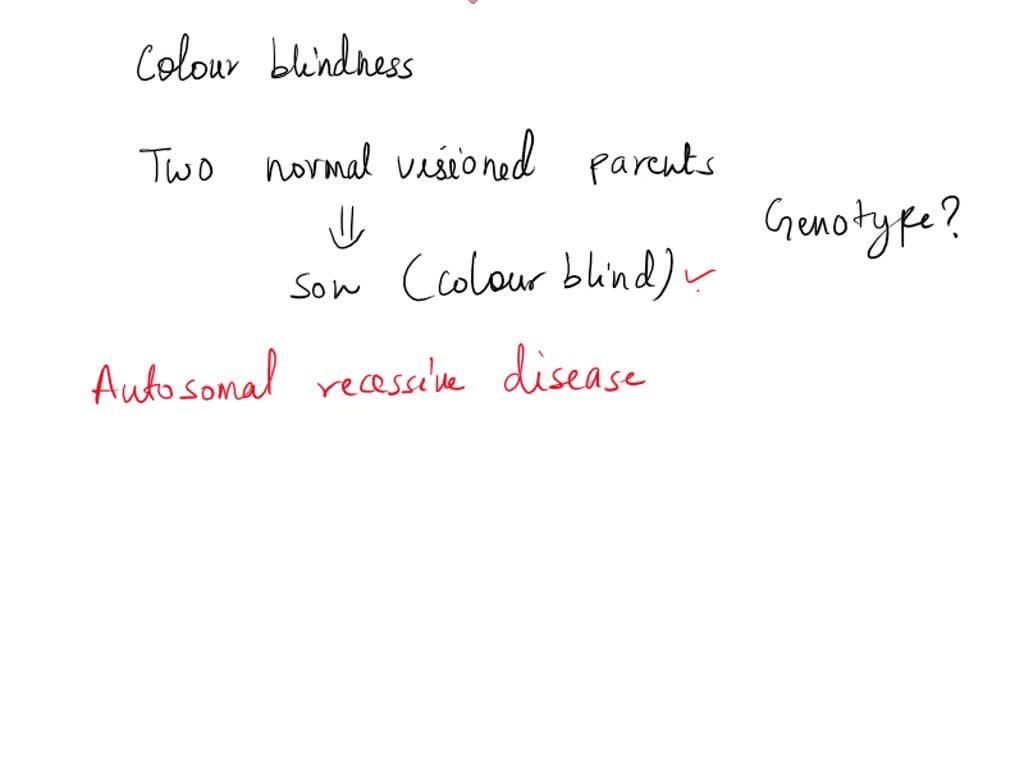 Colour blindness
Two normal visioned parents
Genotype?
⇓
son (colour blind) ✓
Autosomal recessive disease